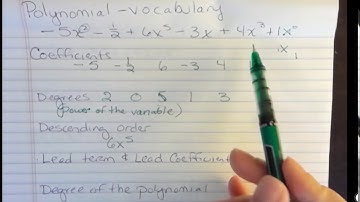 Polynomial - vocabulary
- 5x² - 1/2 + 6x⁵ - 3x + 4x³ + 1x⁰
1x 1
Coefficients
- 5 - 1/2 6 - 3 4
Degrees 2 0 5 1 3
(power of the variable)
Descending order
6x⁵
Lead term & Lead Coefficient
Degree of the polynomial